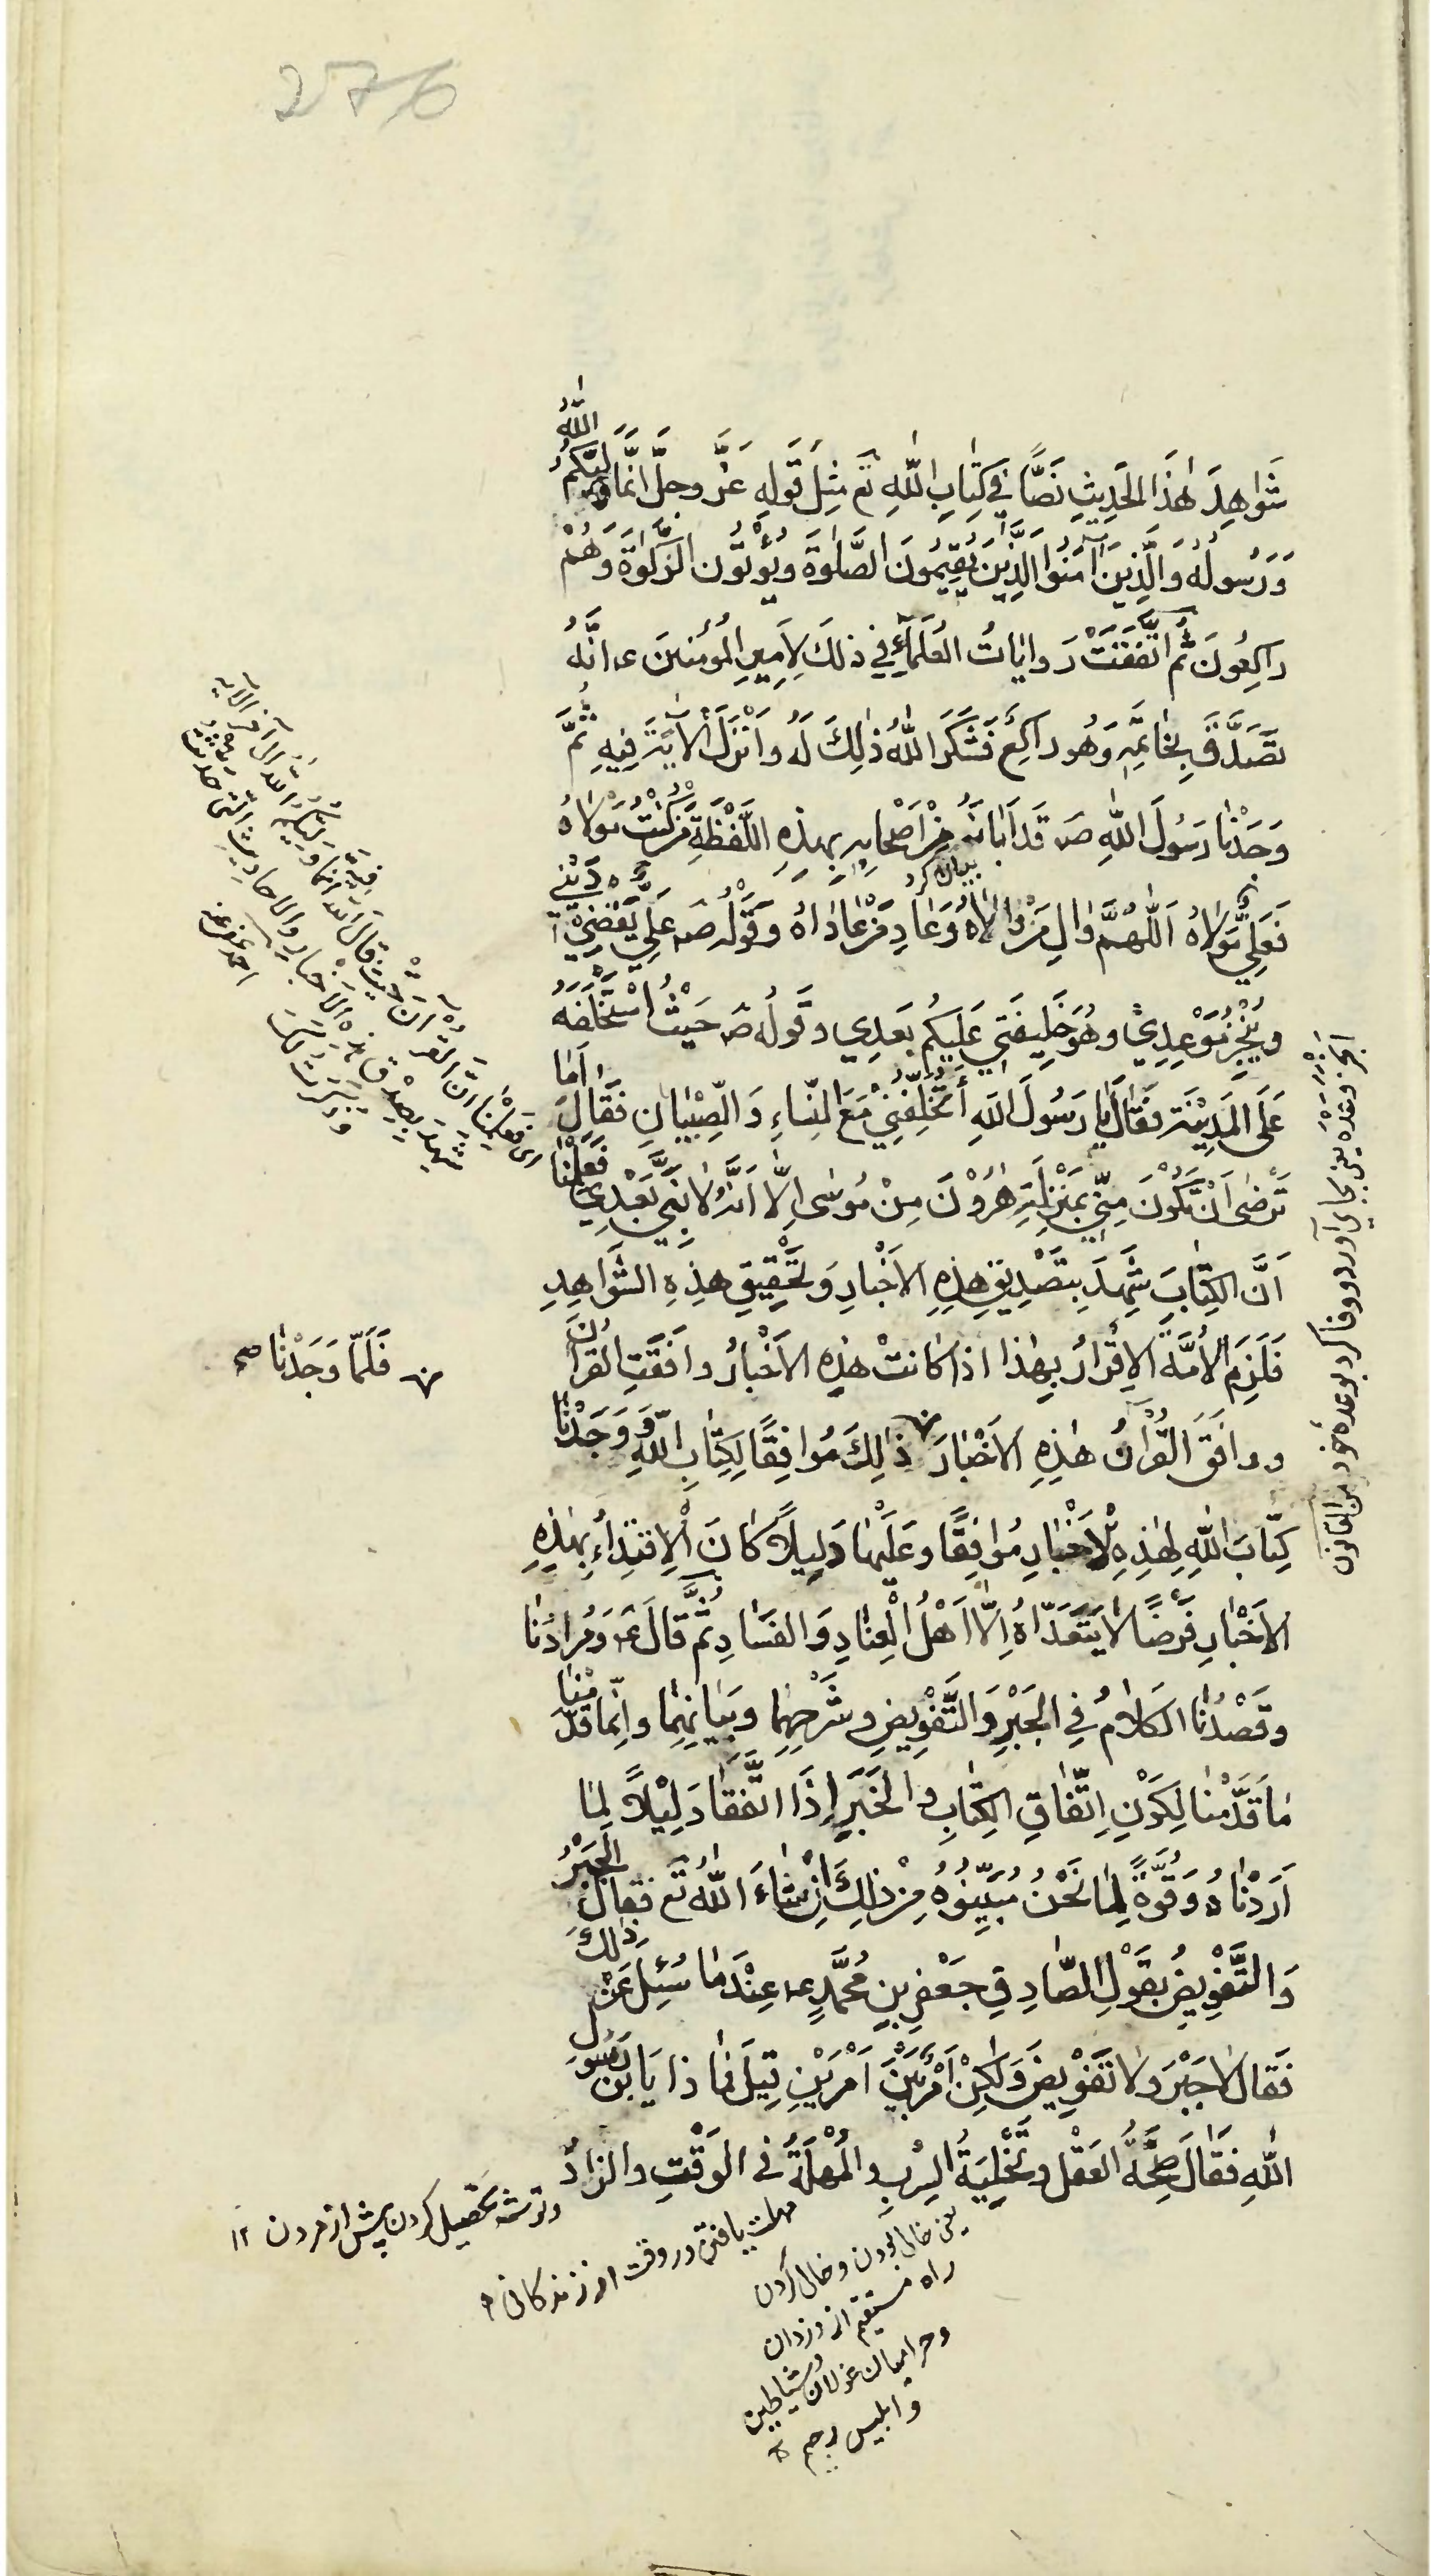 276
شَوَاهِدَ هٰذَا الْحَدِيثِ نَصًّا فِي كِتَابِ اللّٰهِ تع مِثْلَ قَوْلِهِ عَزَّ وجلَّ انَّمَا وَلِيُّكُمُ اللّٰهُ
وَرَسُولُهُ وَالَّذِينَ آمَنُوا الَّذِيْنَ يُقِيمُونَ الصَّلٰوةَ وَيُؤْتُونَ الزَّكٰوةَ وَهُمْ
رَاكِعُونَ ثُمَّ اتَّفَقَتْ رَوايَاتُ الْعُلَمَآءِ فِي ذٰلِكَ لِاَمِيرِ الْمُؤمِنينَ ع انَّهُ
تَصَدَّقَ بِخَاتَمِهِ وَهُوَ رَاكِعٌ فَشَكَرَ اللّٰهُ ذٰلِكَ لَهُ وَاَنْزَلَ الْاٰيَةَ فِيهِ ثُمَّ
وَجَدْنَا رَسُولَ اللّٰهِ ص قَدْ اَبَانَهُ مِنْ اَصْحَابِهِ بِهٰذِهِ اللَّفْظَةِ مَنْ كُنْتُ مَوْلَاهُ
بيان كرد
فَعَلِيٌّ مَوْلَاهُ اَللّٰهُمَّ وَالِ مَنْ وَالَاهُ وَعَادِ مَنْ عَادَاهُ وَقَوْلُه ص عَلِيٌّ يَقْضِيْ دَيْنِي
وَيُنْجِزُ مَوْعِدِيْ وَهُوَ خَلِيفَتِي عَلَيْكُمْ بَعْدِي وَقَولُه ص حَيْثُ اسْتَخْلَفَهُ
عَلَى الْمَدِيْنَةِ فَقَالَ يَا رَسُولَ اللّٰهِ أَتُخَلِّفُنِيْ مَعَ النِّسَاءِ وَالصِّبْيَانِ فَقَالَ اَمَا
تَرْضٰى اَنْ تَكُوْنَ مِنِّي بِمَنْزِلَةِ هٰرُوْنَ مِنْ مُوسٰى اِلَّا اَنَّهُ لَا نَبِيَّ بَعْدِي فَعَلِمْنَا
اَنَّ الْكِتَابَ شَهِدَ بِتَصْدِيقِ هٰذِهِ الْاَخْبَارِ وَتَحْقِيقِ هٰذِهِ الشَّوَاهِدِ
فَلَزِمَ الْاُمَّةَ الْاِقْرَارُ بِهٰذَا اذَا كَانَتْ هٰذِهِ الْاَخْبَارُ وَافَقَتِ القُراٰنَ
ووَافَقَ الْقُرْاٰنُ هٰذِهِ الْاَخْبَارَ ذٰلِكَ مُوَافِقًا لِكِتَابِ اللّٰهِ وَ وَجَدْنَا
فَلَمَّا وَجَدْنَا صح
كِتَابَ اللّٰهِ لِهٰذِهِ الْاَخْبَارِ مُوَافِقًا وَعَلَيْهَا دَلِيلًا كَانَ الْاِقْتِدَاءُ بِهٰذِهِ
الْاَخْبَارِ فَرْضًا لَا يَتَعَدَّاهُ اِلَّا اَهْلُ الْعِنَادِ وَالْفَسَادِ ثُمَّ قَالَ ع وَمُرَادُنَا
وقَصْدُنَا الْكَلَامُ فِي الْجَبْرِ وَالتَّفْوِيضِ وشَرْحِهِمَا وَبَيَانِهِمَا وانَّمَا قَدَّمْنَا
مَا قَدَّمْنَا لِكَوْنِ اِتِّفَاقِ الْكِتَابِ والْخَبَرِ اِذَا اتَّفَقَا دَلِيْلًا لِمَا
اَرَدْنَاهُ وَقُوَّةً لِمَا نَحْنُ مُبَيِّنُوهُ مِنْ ذٰلِكَ اِنْ شَاءَ اللّٰهُ تَع فَقَالَ الْجَبْرُ
وَالتَّفْوِيضُ بِقَوْلِ الصَّادِقِ جَعْفَرِ بنِ مُحَمَّدٍ ع عِنْدَمَا سُئِلَ عَنْ ذٰلِكَ
فَقَالَ لَا جَبْرَ وَلَا تَفْوِيضَ وَلٰكِنْ اَمْرٌ بَيْنَ اَمْرَيْنِ قِيلَ فَمَا ذَا يَا بْنَ رَسُولِ
اللّٰهِ فَقَالَ صِحَّةُ الْعَقْلِ وَتَخْلِيَةُ السِّرْبِ والْمُهْلَةُ فِي الْوَقْتِ وَالزَّادُ
وتوشه تحصيل كردن پيش از مردن ١٢
مهلت يافتن در وقت از زندكانى
يعنى خالى بودن و خالى كردن
راه مستقيم از دزدان
وحراميان غولان وشياطين
وابليس رجيم
انجز وعده يعنى بجاى آورد ووفا كرد بوعدهٔ خود من القانون